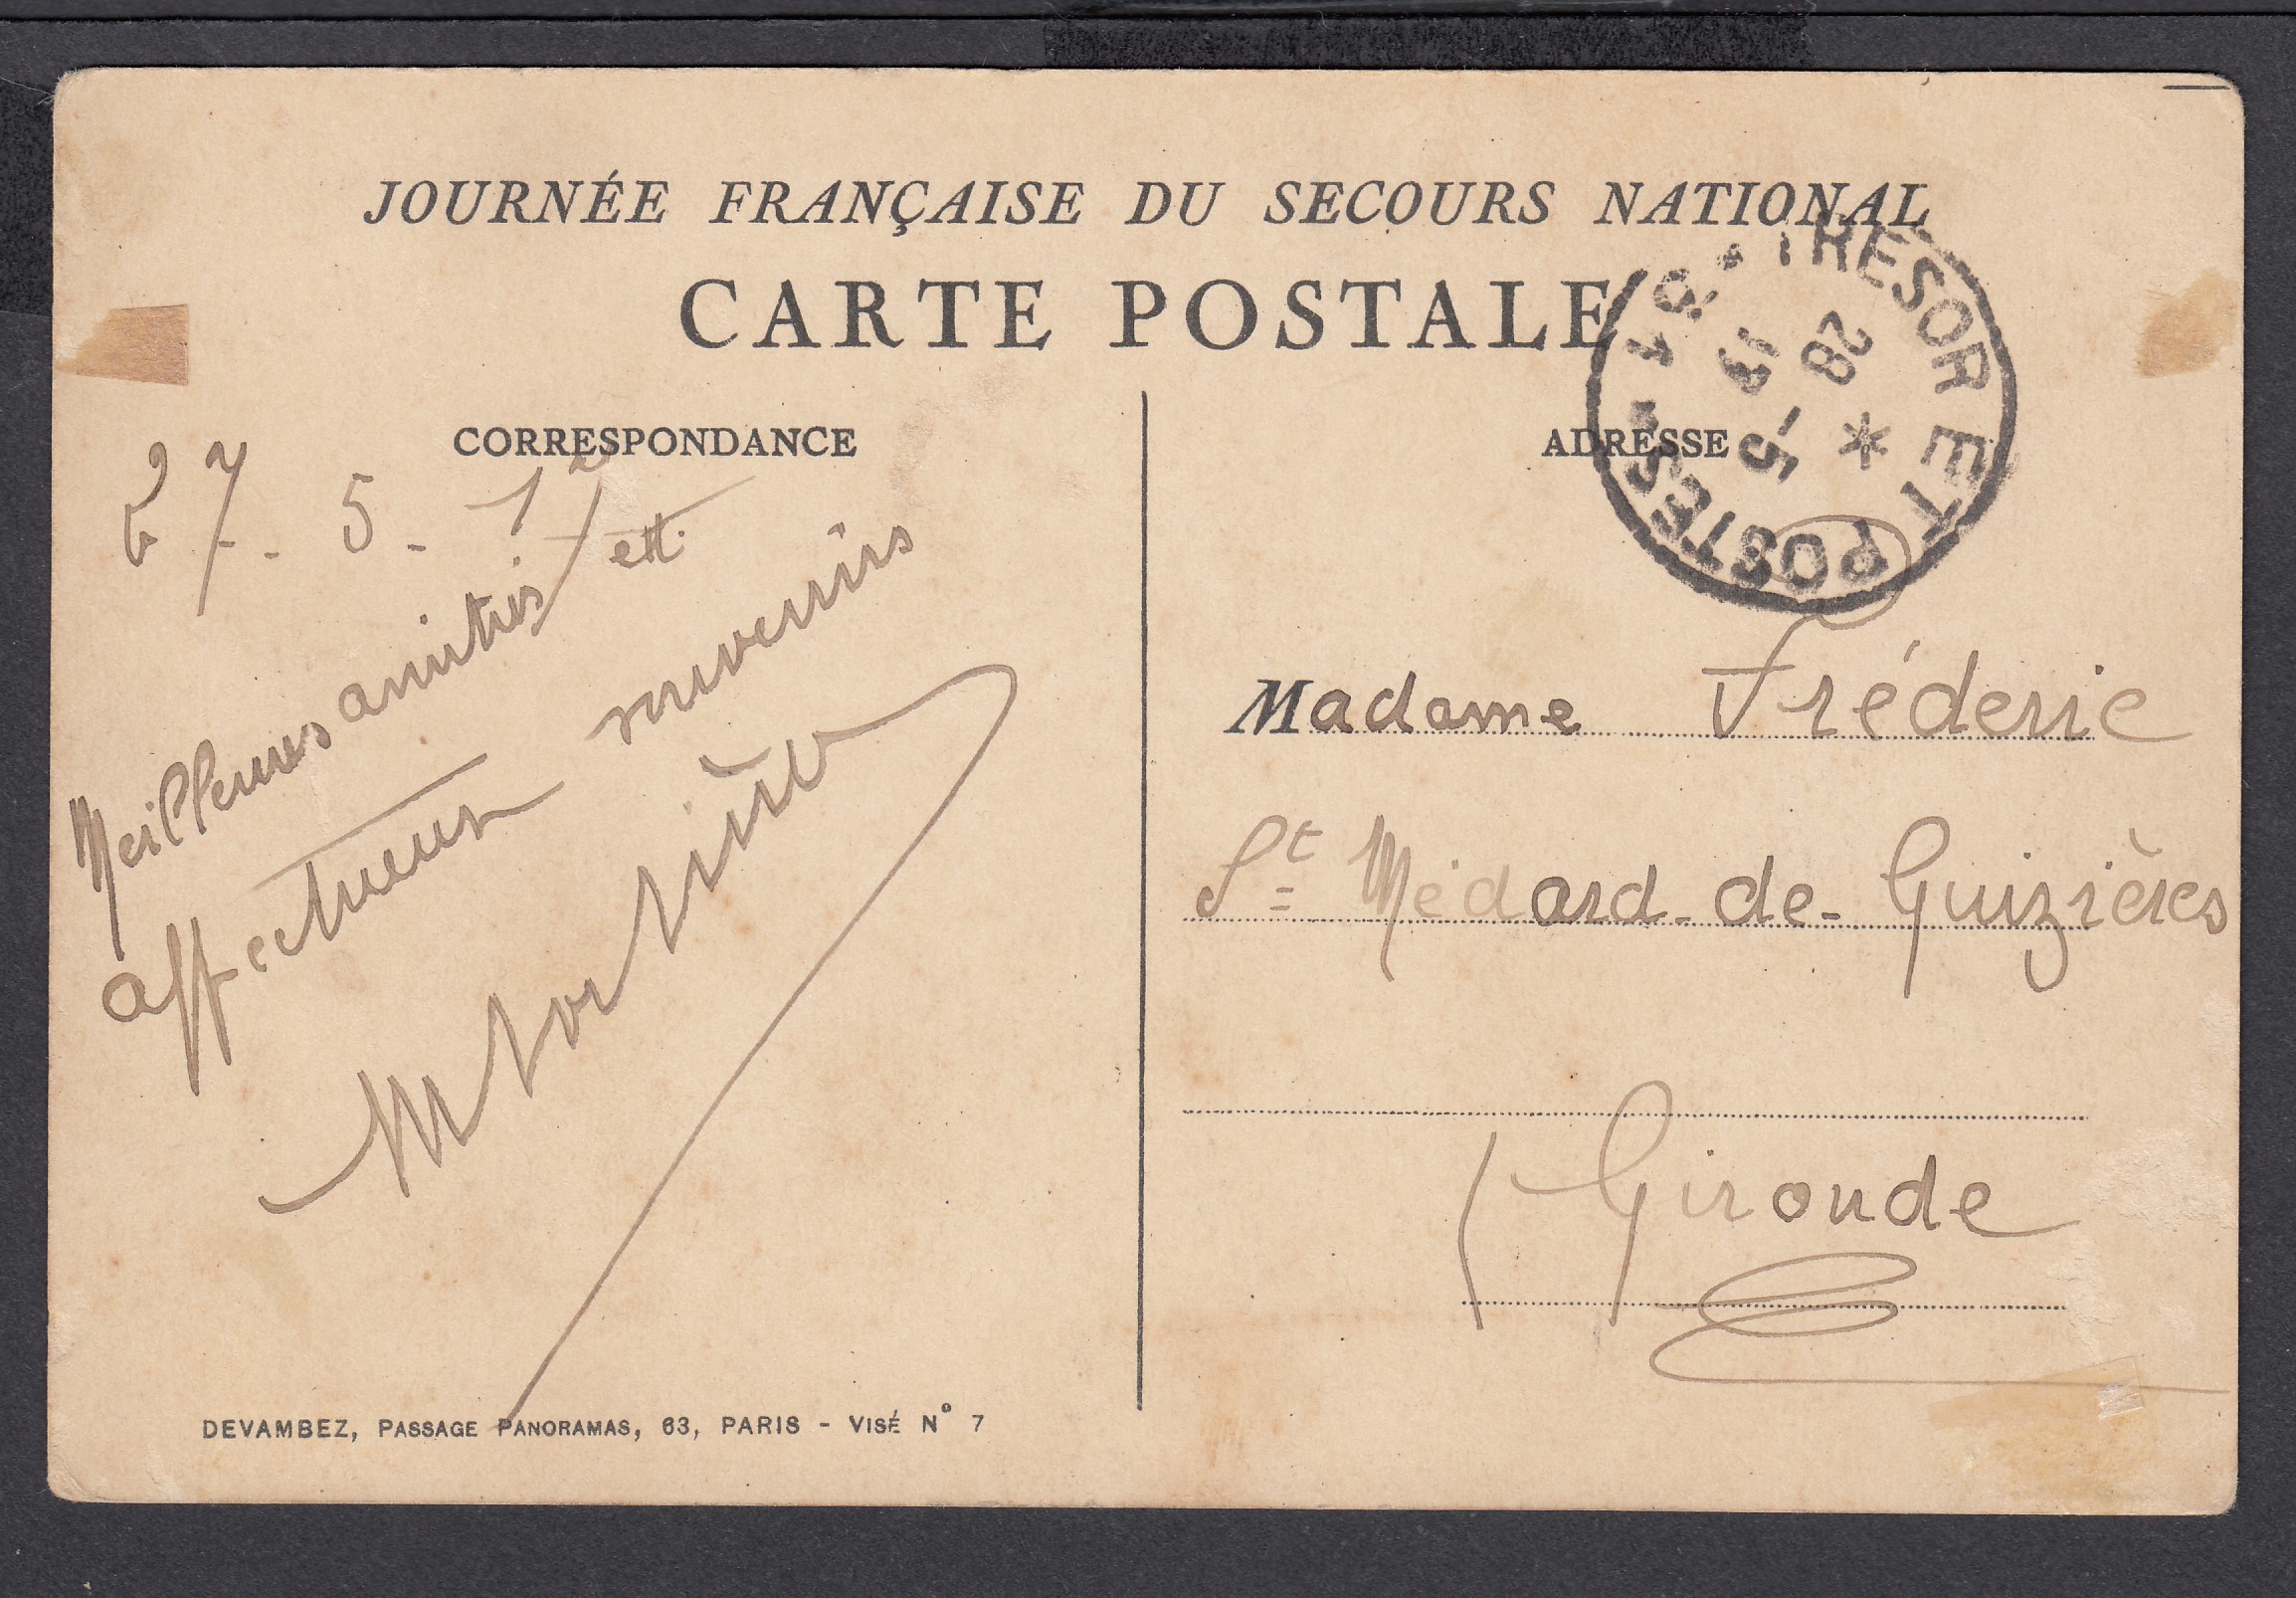 JOURNÉE FRANÇAISE DU SECOURS NATIONAL
CARTE POSTALE
CORRESPONDANCE
27. 5. 17
Meilleures amitiés et
affectueux souvenirs
ADRESSE
TRESOR ET POSTES
28
5
Madame Fréderic
St Médard-de-Guizières
Gironde
DEVAMBEZ, PASSAGE PANORAMAS, 63, PARIS - VISÉ No 7